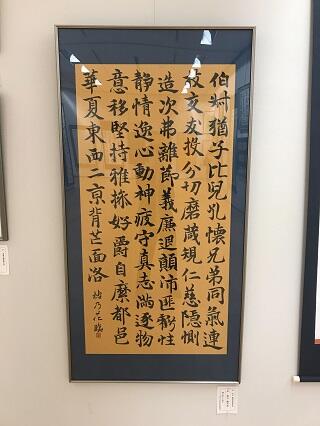 伯叔猶子比兒孔懷兄弟同氣連
枝交友投分切磨箴規仁慈隱惻
造次弗離節義廉退顛沛匪虧性
静情逸心動神疲守真志滿逐物
意移堅持雅操好爵自縻都邑
華夏東西二京背芒面洛 臨